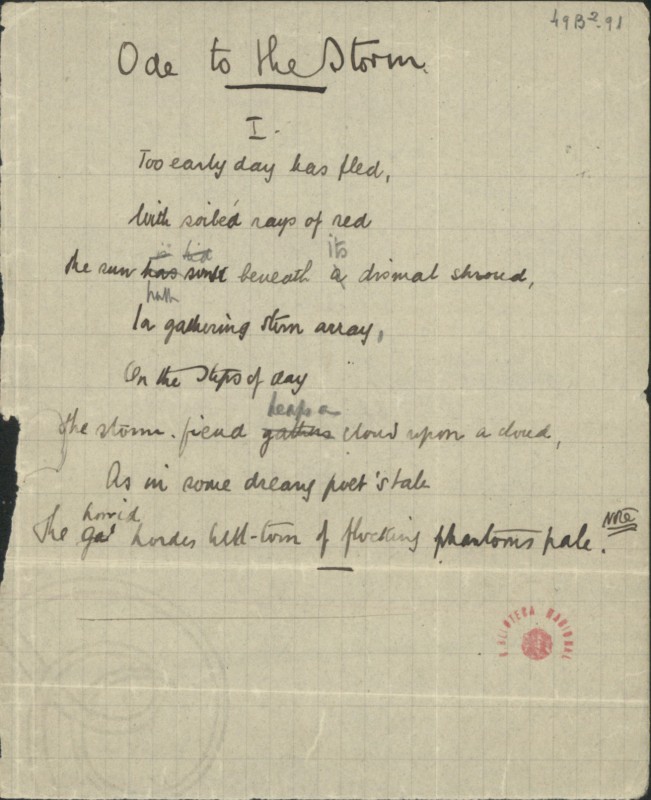 49B².91
Ode to the Storm.
I.
Too early day has fled,
With soiléd rays of red
is hid its
The sun has sunk beneath a dismal shroud,
hath
In gathering storm array,
On the steps of day
heaps a
The storm-fiend gathers cloud upon a cloud,
As in some dreamy poet's tale
horrid
The hordes hell-torn of flocking phantoms pale.
BIBLIOTECA NACIONAL